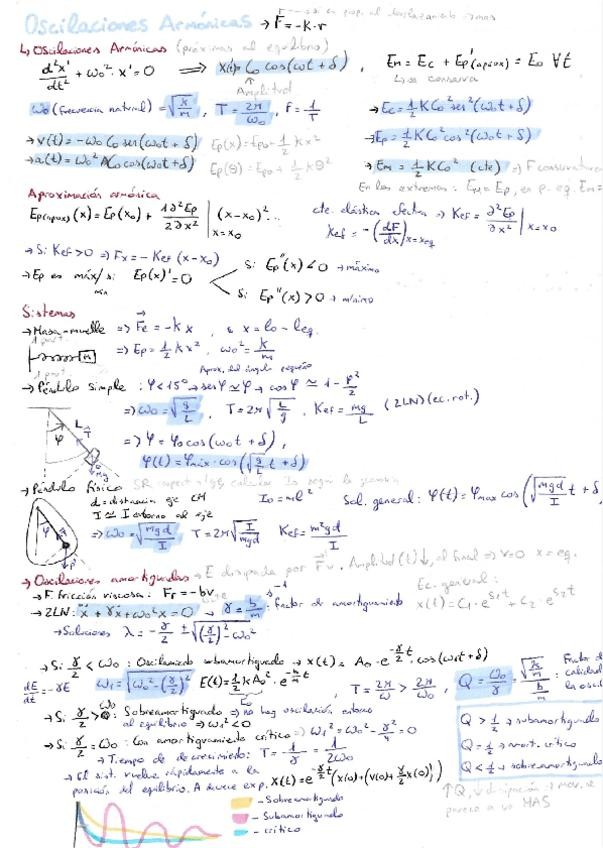 Oscilaciones Armónicas → F = -K·r
↳ Oscilaciones Armónicas (próximas al equilibrio)
d²x'/dt² + ω₀²·x' = 0 ⟹ x(t) = C₀ cos(ωt + δ), Em = Ec + Ep'(aprox) = E₀ ∀t
Amplitud
↳ se conserva
ω₀ (frecuencia natural) = √(k/m), T = 2π/ω₀, f = 1/T → Ec = 1/2 K C₀² sen²(ω₀t + δ)
→ v(t) = -ω₀ C₀ sen(ω₀t + δ) Ep(x) = Ep₀ + 1/2 k x² → Ep = 1/2 K C₀² cos²(ω₀t + δ)
→ a(t) = ω₀² C₀ cos(ω₀t + δ) Ep(θ) = Ep₀ + 1/2 Kθ² → Em = 1/2 K C₀² (cte) ⇒ F conservativa
En los extremos: Em = Ep, en p. eq. Em =
Aproximación armónica
Ep(aprox)(x) = Ep(x₀) + 1/2 ∂²Ep/∂x² |x=x₀ (x-x₀)²... cte. elástica efectiva ⇒ Kef = ∂²Ep/∂x² | x=x₀
Kef = -(dF/dx)x=xeq
→ Si Kef > 0 ⇒ Fx = -Kef (x-x₀)
→ Ep es máx/mín si Ep(x)' = 0
Si Ep''(x) < 0 → máximo
Si Ep''(x) > 0 → mínimo
Sistemas
→ Masa-muelle ⇒ Fe = -k x, x = l₀ - leq.
1 part.
m
⇒ Ep = 1/2 k x², ω₀² = k/m
Aprox. del ángulo pequeño
→ Péndulo simple: φ < 15° → senφ ≃ φ → cosφ ≃ 1 - φ²/2
1 part.
⇒ ω₀ = √(g/L), T = 2π√(L/g), Kef = mg/L (2LN)(ec. rot.)
φ L T mg
⇒ φ = φ₀ cos(ω₀t + δ),
φ(t) = φmáx · cos(√(g/L) t + δ)
→ Péndulo físico SR calcular I₀ según la
d = distancia eje CM I₀ = ml² Sol. general: φ(t) = φmax cos(√(mgd/I) t + δ)
I ≃ I entorno al eje
⇒ ω₀ = √(mgd/I) T = 2π√(I/mgd) Kef = m²gd/I
→ Oscilaciones amortiguadas → E disipada por Fv. Amplitud(t)↓, al final ⇒ v=0 x=eq.
→ F. fricción viscosa: Fr = -bv
Ec. general:
→ 2LN: ẍ + γẋ + ω₀²x = 0 → γ = b/m : factor de amortiguamiento x(t) = C₁·e^(s₁t) + C₂·e^(s₂t)
→ Soluciones λ = -γ/2 ± √((γ/2)² - ω₀²)
→ Si γ/2 < ω₀ : Oscilamiento subamortiguado → x(t) = A₀·e^(-γ/2 t)·cos(ω₁t + δ)
dE/dt = -γE ω₁ = √(ω₀² - (γ/2)²) E(t) = 1/2 k A₀²·e^(-b/m t), T = 2π/ω > 2π/ω₀, Q = ω₀/γ = √(k/m)/(b/m) Factor de calidad
E₀
→ Si γ/2 > ω₀: Sobreamortiguado ⇒ no hay oscilación entorno
al equilibrio ⇒ ω₁² < 0
→ Si γ/2 = ω₀ : Con amortiguamiento crítico ⇒ ω₁² = ω₀² - γ²/4 = 0
→ Tiempo de decrecimiento: T = 1/γ = 1/2ω₀
→ El sist. vuelve rápidamente a la
posición del equilibrio. A decrece exp. x(t) = e^(-γ/2 t)(x(0) + (v(0) + γ/2 x(0))t)
Q > 1/2 → subamortiguado
Q = 1/2 → mort. crítico
Q < 1/2 → sobreamortiguado
↑Q, ↓disipación → mov. se
parece a un MAS
- Sobreamortiguado
- Subamortiguado
- crítico